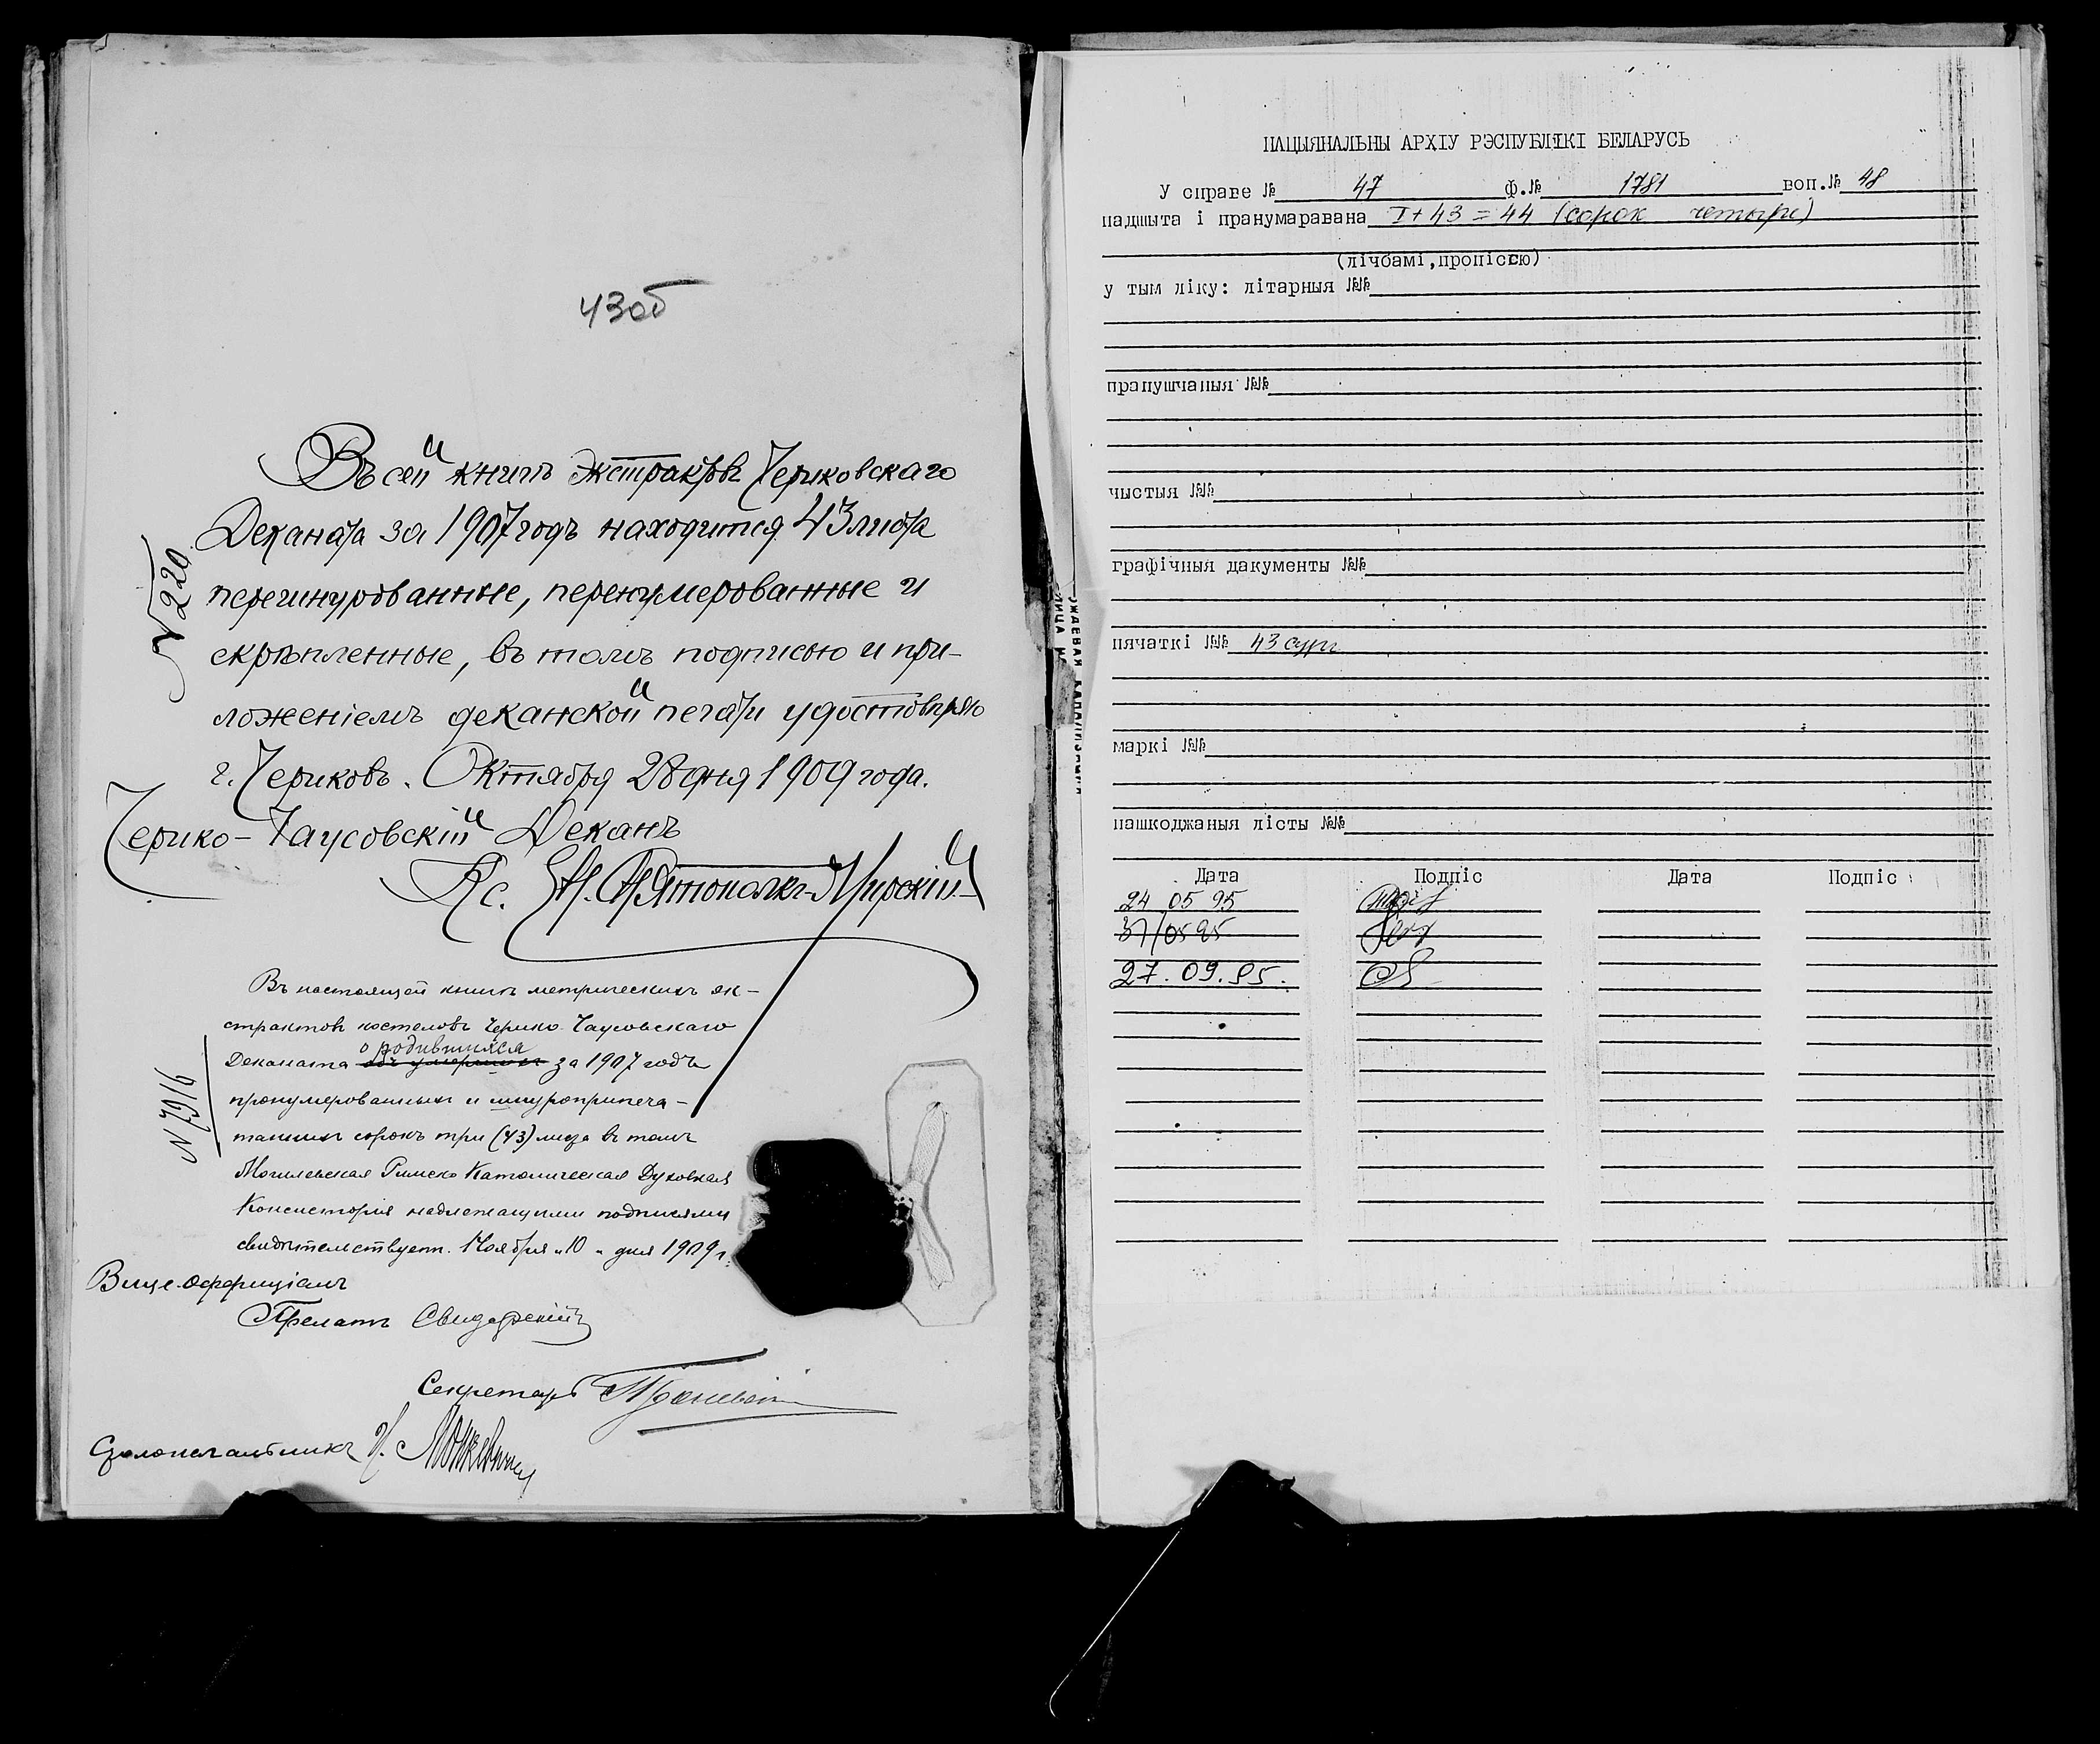 43об
Въ сей книгѣ экстрактовъ Чериковскаго
Деканата за 1907 годъ находится 43 листа
перешнурованные, перенумерованные и
скрѣпленные, въ томъ подписью и при-
ложеніемъ деканской печати удостовѣряю
г. Чериковъ. Октября 28 дня 1909 года.
№ 220
Черико-Чаусовскій Деканъ
Кс. Святополкъ-Мирскій
Въ настоящей книгѣ метрическихъ эк-
страктовъ костеловъ Черико-Чаусовскаго
о родившихся
Деканата объ умершихъ за 1907 годъ
пронумерованныхъ и шнуроприпеча-
танныхъ сорокъ три (43) листа въ томъ
Могилевская Римско Католическая Духовная
Консисторія надлежащими подписями
свидѣтельствуетъ. Ноября „10" дня 1909 г.
№ 7916
Вице-Оффиціалъ
Прелатъ Свидерскій
Секретарь
Столоначальникъ
НАЦЫЯНАЛЬНЫ АРХІУ РЭСПУБЛІКІ БЕЛАРУСЬ
У справе № 47 ф.№ 1781 воп.№ 48
падшыта і пранумаравана I+43=44 (сорок четыри)
(лічбамі,пропіссю)
у тым ліку: літарныя №№
прапушчаныя №№
чыстыя №№
графічныя дакументы №№
пячаткі №№ 43 сург
маркі №№
пашкоджаныя лісты №№
Дата Подпіс Дата Подпіс
24 05 95
31/05 95
27.09.95.